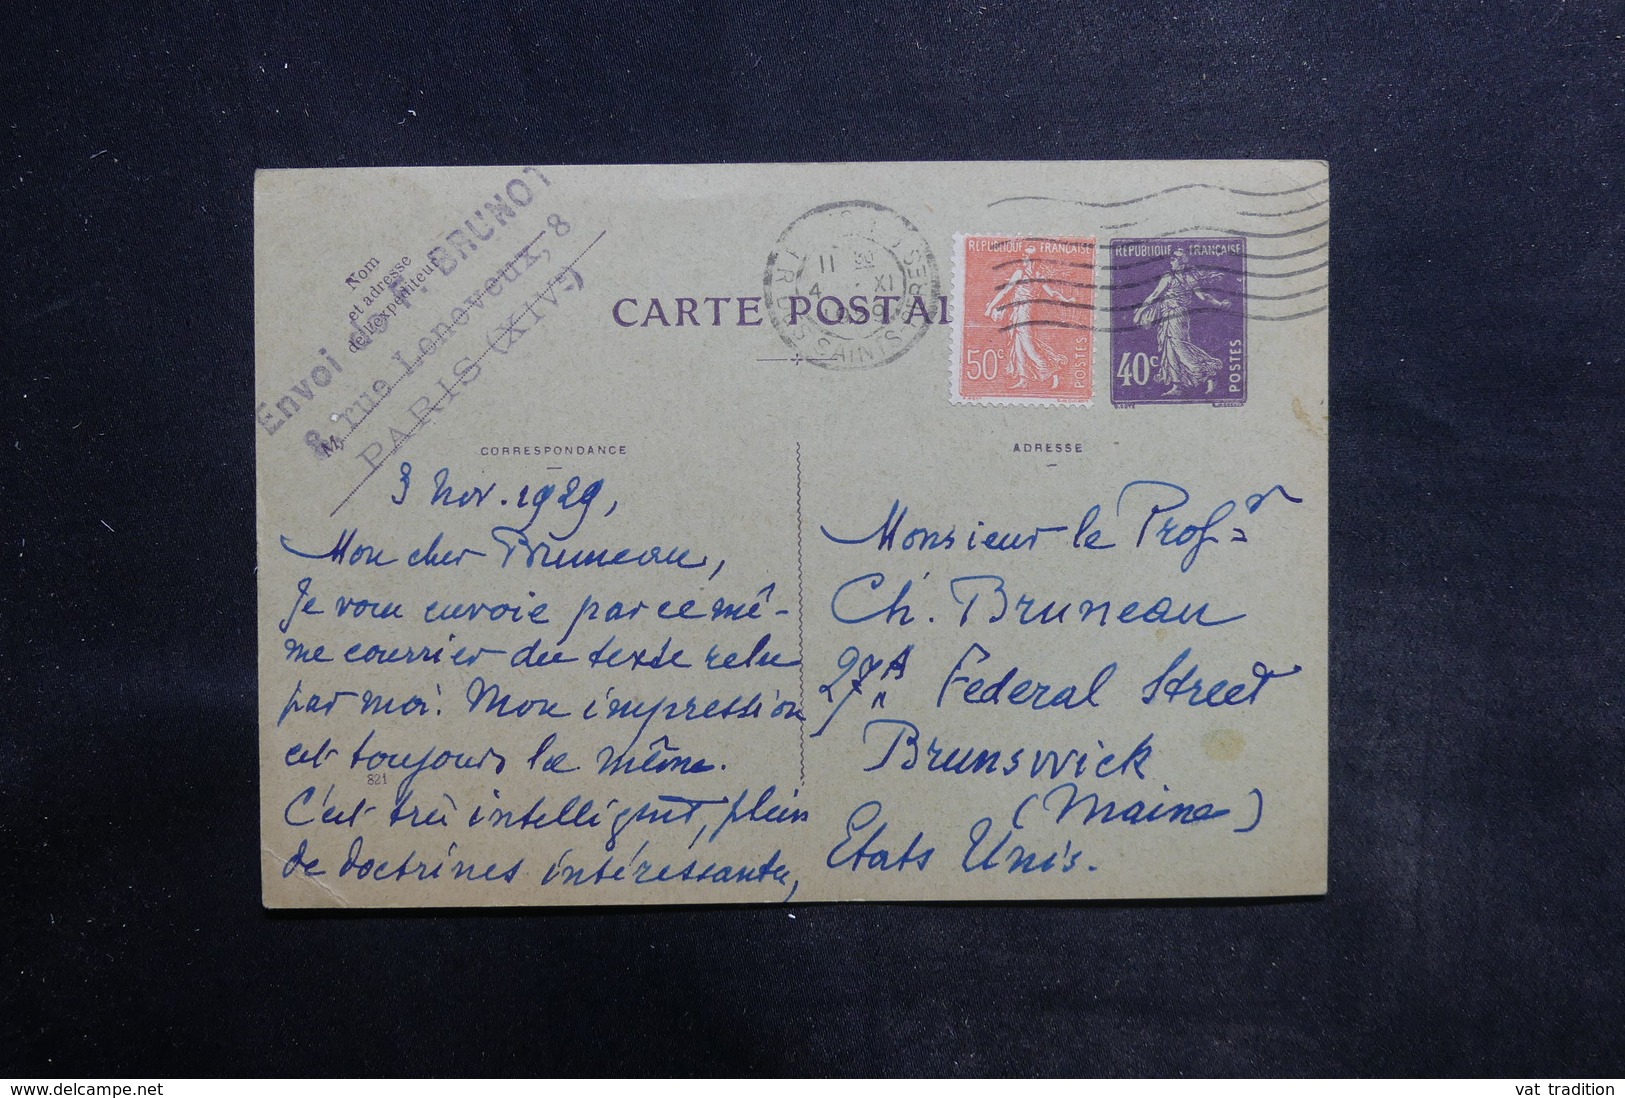 Envoi de F. BRUNOT
8, rue Leneveux, 8
PARIS (XIVe)
Nom
et adresse
de l'expéditeur
M
CARTE POSTAL
11
4 XI
1929
REPUBLIQUE FRANÇAISE
50c
POSTES
REPUBLIQUE FRANÇAISE
40c
POSTES
CORRESPONDANCE
ADRESSE
3 Nov. 1929,
Mon cher Bruneau,
Je vous envoie par ce mê-
me courrier du texte relu
par moi. Mon impression
est toujours la même.
C'est très intelligent, plein
de doctrines intéressantes,
821
Monsieur le Profr
Ch. Bruneau
27A Federal Street
Brunswick
(Maine)
Etats Unis.
www.delcampe.net
vat tradition